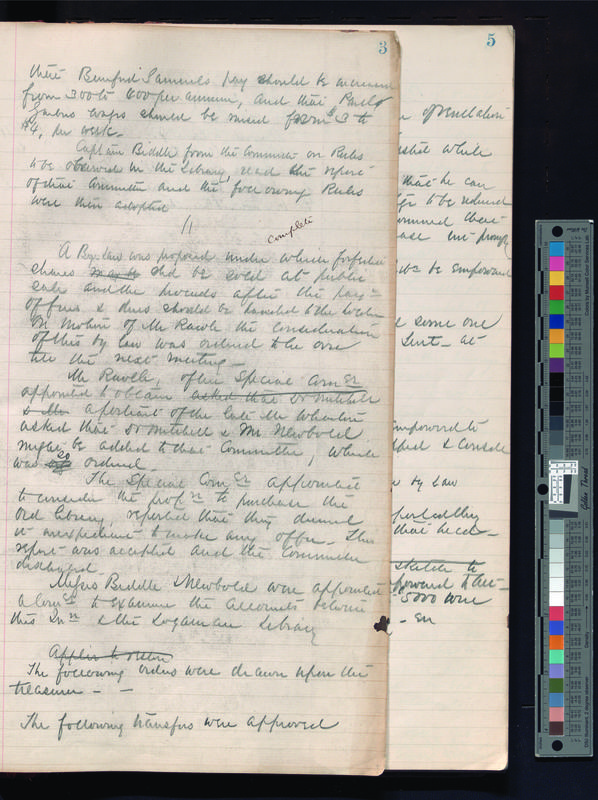 3
that Benford Samuels pay should be increased
from 300 to 600 per annum, and that
wages should be raised from $3 to
$4, per week.
Captain Biddle from the Committee on Rules
to be observed in the Library, read the report
of that Committee and the following Rules
were then adopted
complete
A Bye law was proposed under which forfeited
shares may be shd be sold at public
sale and the proceeds after the paymt
of fines & dues should be handed to the holder
On motion of Mr Rawle the consideration
of this by law was ordered to lie over
till the next meeting —
Mr Rawle, of the Special Comee
appointed to obtain asked that Dr Mitchell
a portrait of the late Mr Wharton
asked that Dr Mitchell & Mr Newbold
might be added to that Committee, which
was so ordered.
The Special Comee appointed
to consider the propn to purchase the
old Library, reported that they deemed
it inexpedient to make any offer. This
report was accepted and the Committee
discharged
Messrs Biddle & Newbold were appointed
a Comee to examine the accounts between
this Inn & the Loganian Library
The following orders were drawn upon the
treasurer — —
The following transfers were approved
5
of ventilation
while
that he can
to be
there
promptly
be empowered
some one
sent — at
empowered to
& console
by Law
reported they
that he
sketch to
forward to
5000 were